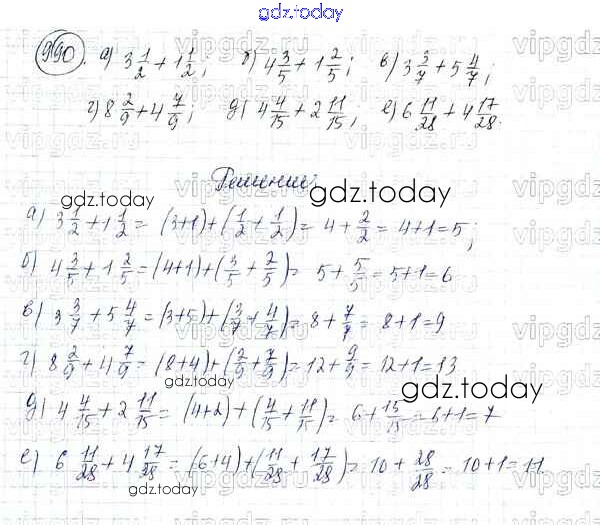 gdz.today
990. а) 3 1/2 + 1 1/2; б) 4 3/5 + 1 2/5; в) 3 3/7 + 5 4/7;
г) 8 2/9 + 4 7/9; д) 4 4/15 + 2 11/15; е) 6 11/28 + 4 17/28.
Решение:
gdz.today
gdz.today
а) 3 1/2 + 1 1/2 = (3+1) + (1/2 + 1/2) = 4 + 2/2 = 4+1=5;
б) 4 3/5 + 1 2/5 = (4+1) + (3/5 + 2/5) = 5 + 5/5 = 5+1=6
в) 3 3/7 + 5 4/7 = (3+5) + (3/7 + 4/7) = 8 + 7/7 = 8+1=9
г) 8 2/9 + 4 7/9 = (8+4) + (2/9 + 7/9) = 12 + 9/9 = 12+1=13
gdz.today
gdz.today
д) 4 4/15 + 2 11/15 = (4+2) + (4/15 + 11/15) = 6 + 15/15 = 6+1=7
е) 6 11/28 + 4 17/28 = (6+4) + (11/28 + 17/28) = 10 + 28/28 = 10+1=11
gdz.today